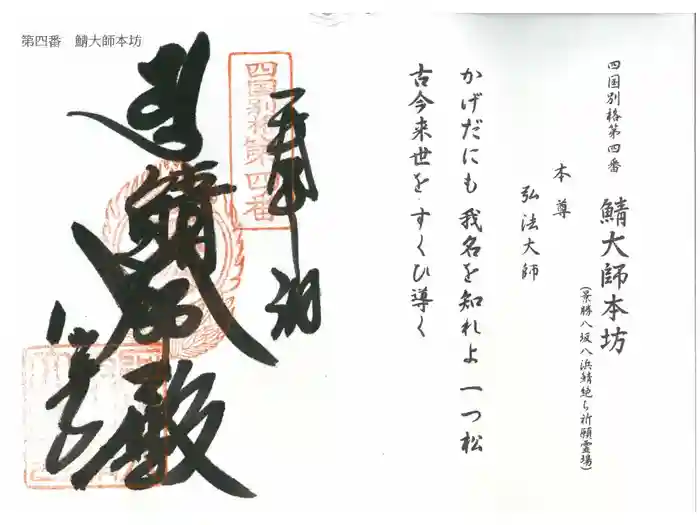 第四番 鯖大師本坊
四国別格第四番
鯖大師本坊
(景勝八坂八浜鯖絶ち祈願霊場)
本尊
弘法大師
かげだにも 我名を知れよ 一つ松
古今来世を すくひ導く
四国別格第四番
奉
鯖
殿